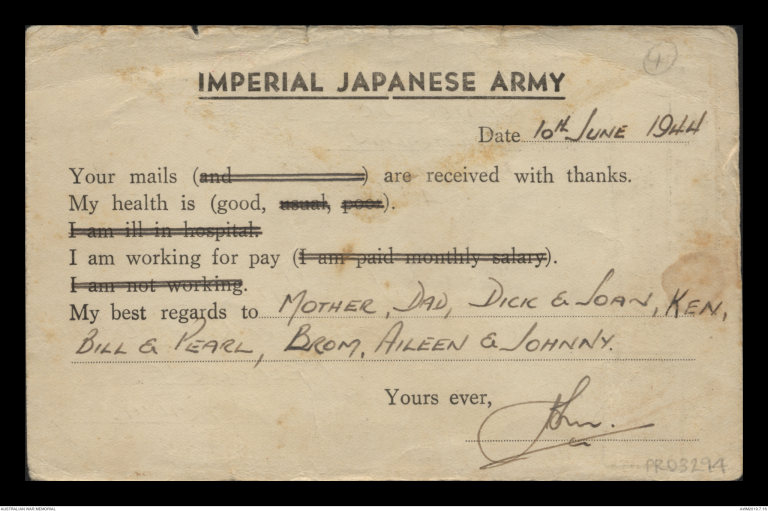 4
IMPERIAL JAPANESE ARMY
Date 10th JUNE 1944
Your mails (and ) are received with thanks.
My health is (good, usual, poor).
I am ill in hospital.
I am working for pay (I am paid monthly salary).
I am not working.
My best regards to MOTHER, DAD, DICK & JOAN, KEN,
BILL & PEARL, BROM, AILEEN & JOHNNY.
Yours ever,
John.
PR03294
AUSTRALIAN WAR MEMORIAL
AWM2019.7.15